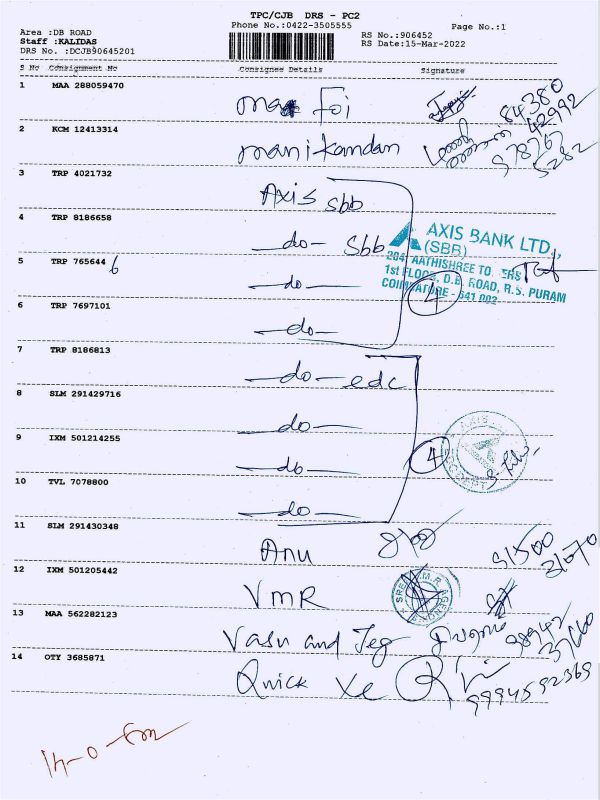 TPC/CJB DRS - PC2
Phone No.:0422-3505555
Page No.:1
Area :DB ROAD
Staff :KALIDAS
DRS No. :DCJB90645201
RS No.:906452
RS Date:15-Mar-2022
S No Consignment No Consignee Details Signature
1 MAA 288059470
Foi
84380
42992
2 KCM 12413314
manikandan
3 TRP 4021732
Axis sbb
4 TRP 8186658
-do- sbb
AXIS BANK LTD.,
(SBB)
5 TRP 765644 6
-do-
1st FLOOR, D.B. ROAD, R.S. PURAM
COIMBATORE - 641 002
4
6 TRP 7697101
-do-
7 TRP 8186813
-do- edc
8 SLM 291429716
-do-
AXIS
9 IXM 501214255
-do-
4
10 TVL 7078800
-do-
11 SLM 291430348
Anu
91500
31070
12 IXM 501205442
VMR
13 MAA 562282123
Vasu and Teg
98942
37660
14 OTY 3685871
Quick Xe
9994592369